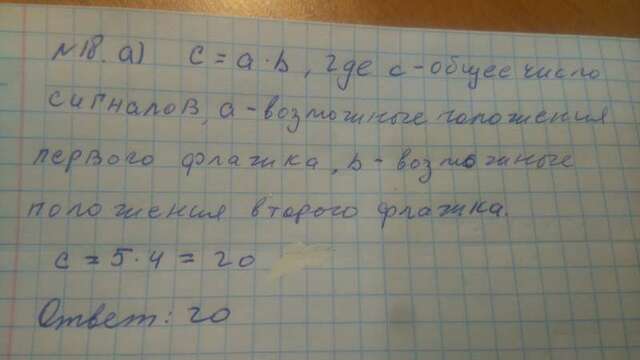 №18. а) c = a·b, где c - общее число
сигналов, a - возможные положения
первого флажка, b - возможные
положения второго флажка.
c = 5·4 = 20
Ответ: 20